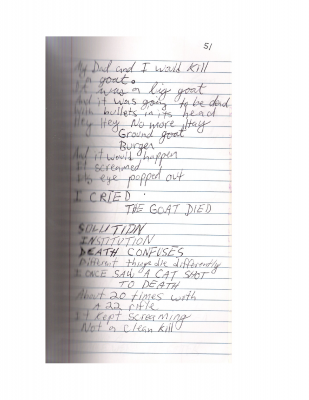 51
My Dad and I would kill
a goat.
It was a big goat
And it was going to be dead
With bullets in its head
Hey Hey No more Hay
Ground goat
Burger
And it would happen
It screamed
Its eye popped out
I CRIED
THE GOAT DIED
SOLUTION
INSTITUTION
DEATH CONFUSES
Different things die differently
I ONCE SAW A CAT SHOT
TO DEATH
About 20 times with
A 22 rifle
It Kept screaming
Not a Clean Kill